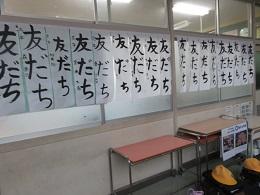 友だち
友だち
友だち
友だち
友だち
友だち
友だち
友だち
友だち
友だち
友だち
友だち
友だち
友だち